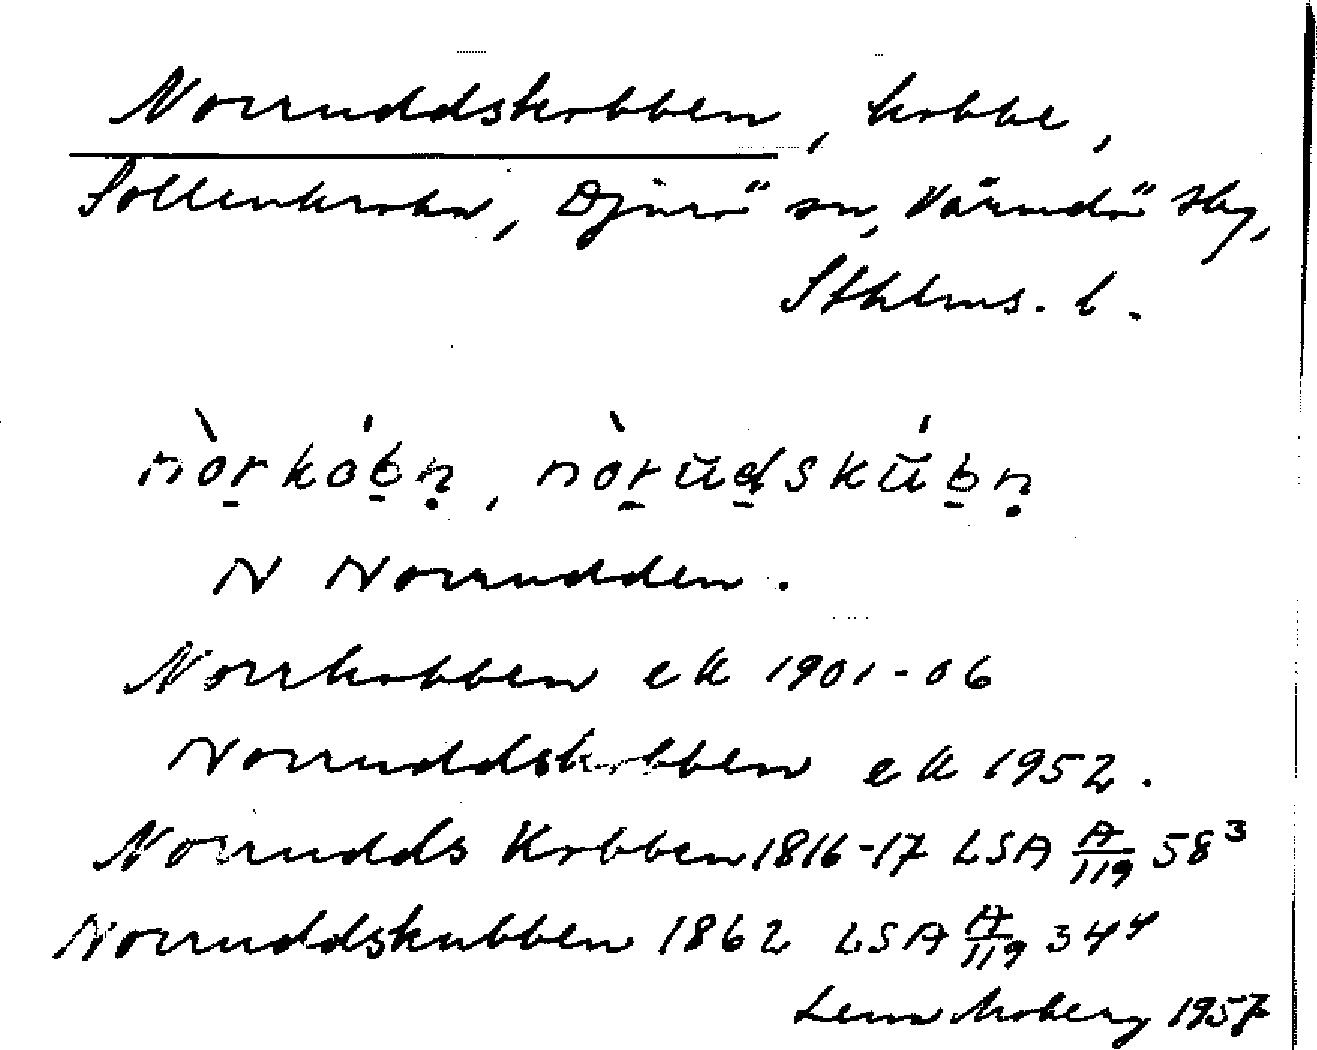 Norruddskobben, kobbe,
Sollenkroka, Djurö sn, Värmdö skg,
Sthlms. l.
nòrkóbn, nòrudskúbn
N Norrudden.
Norrkobben ek 1901-06
Norruddskobben ek 1952.
Norrudds Kobben 1816-17 LSA A/119 58³
Norruddskubben 1862 LSA A/119 34⁴
Lena Moberg 1957